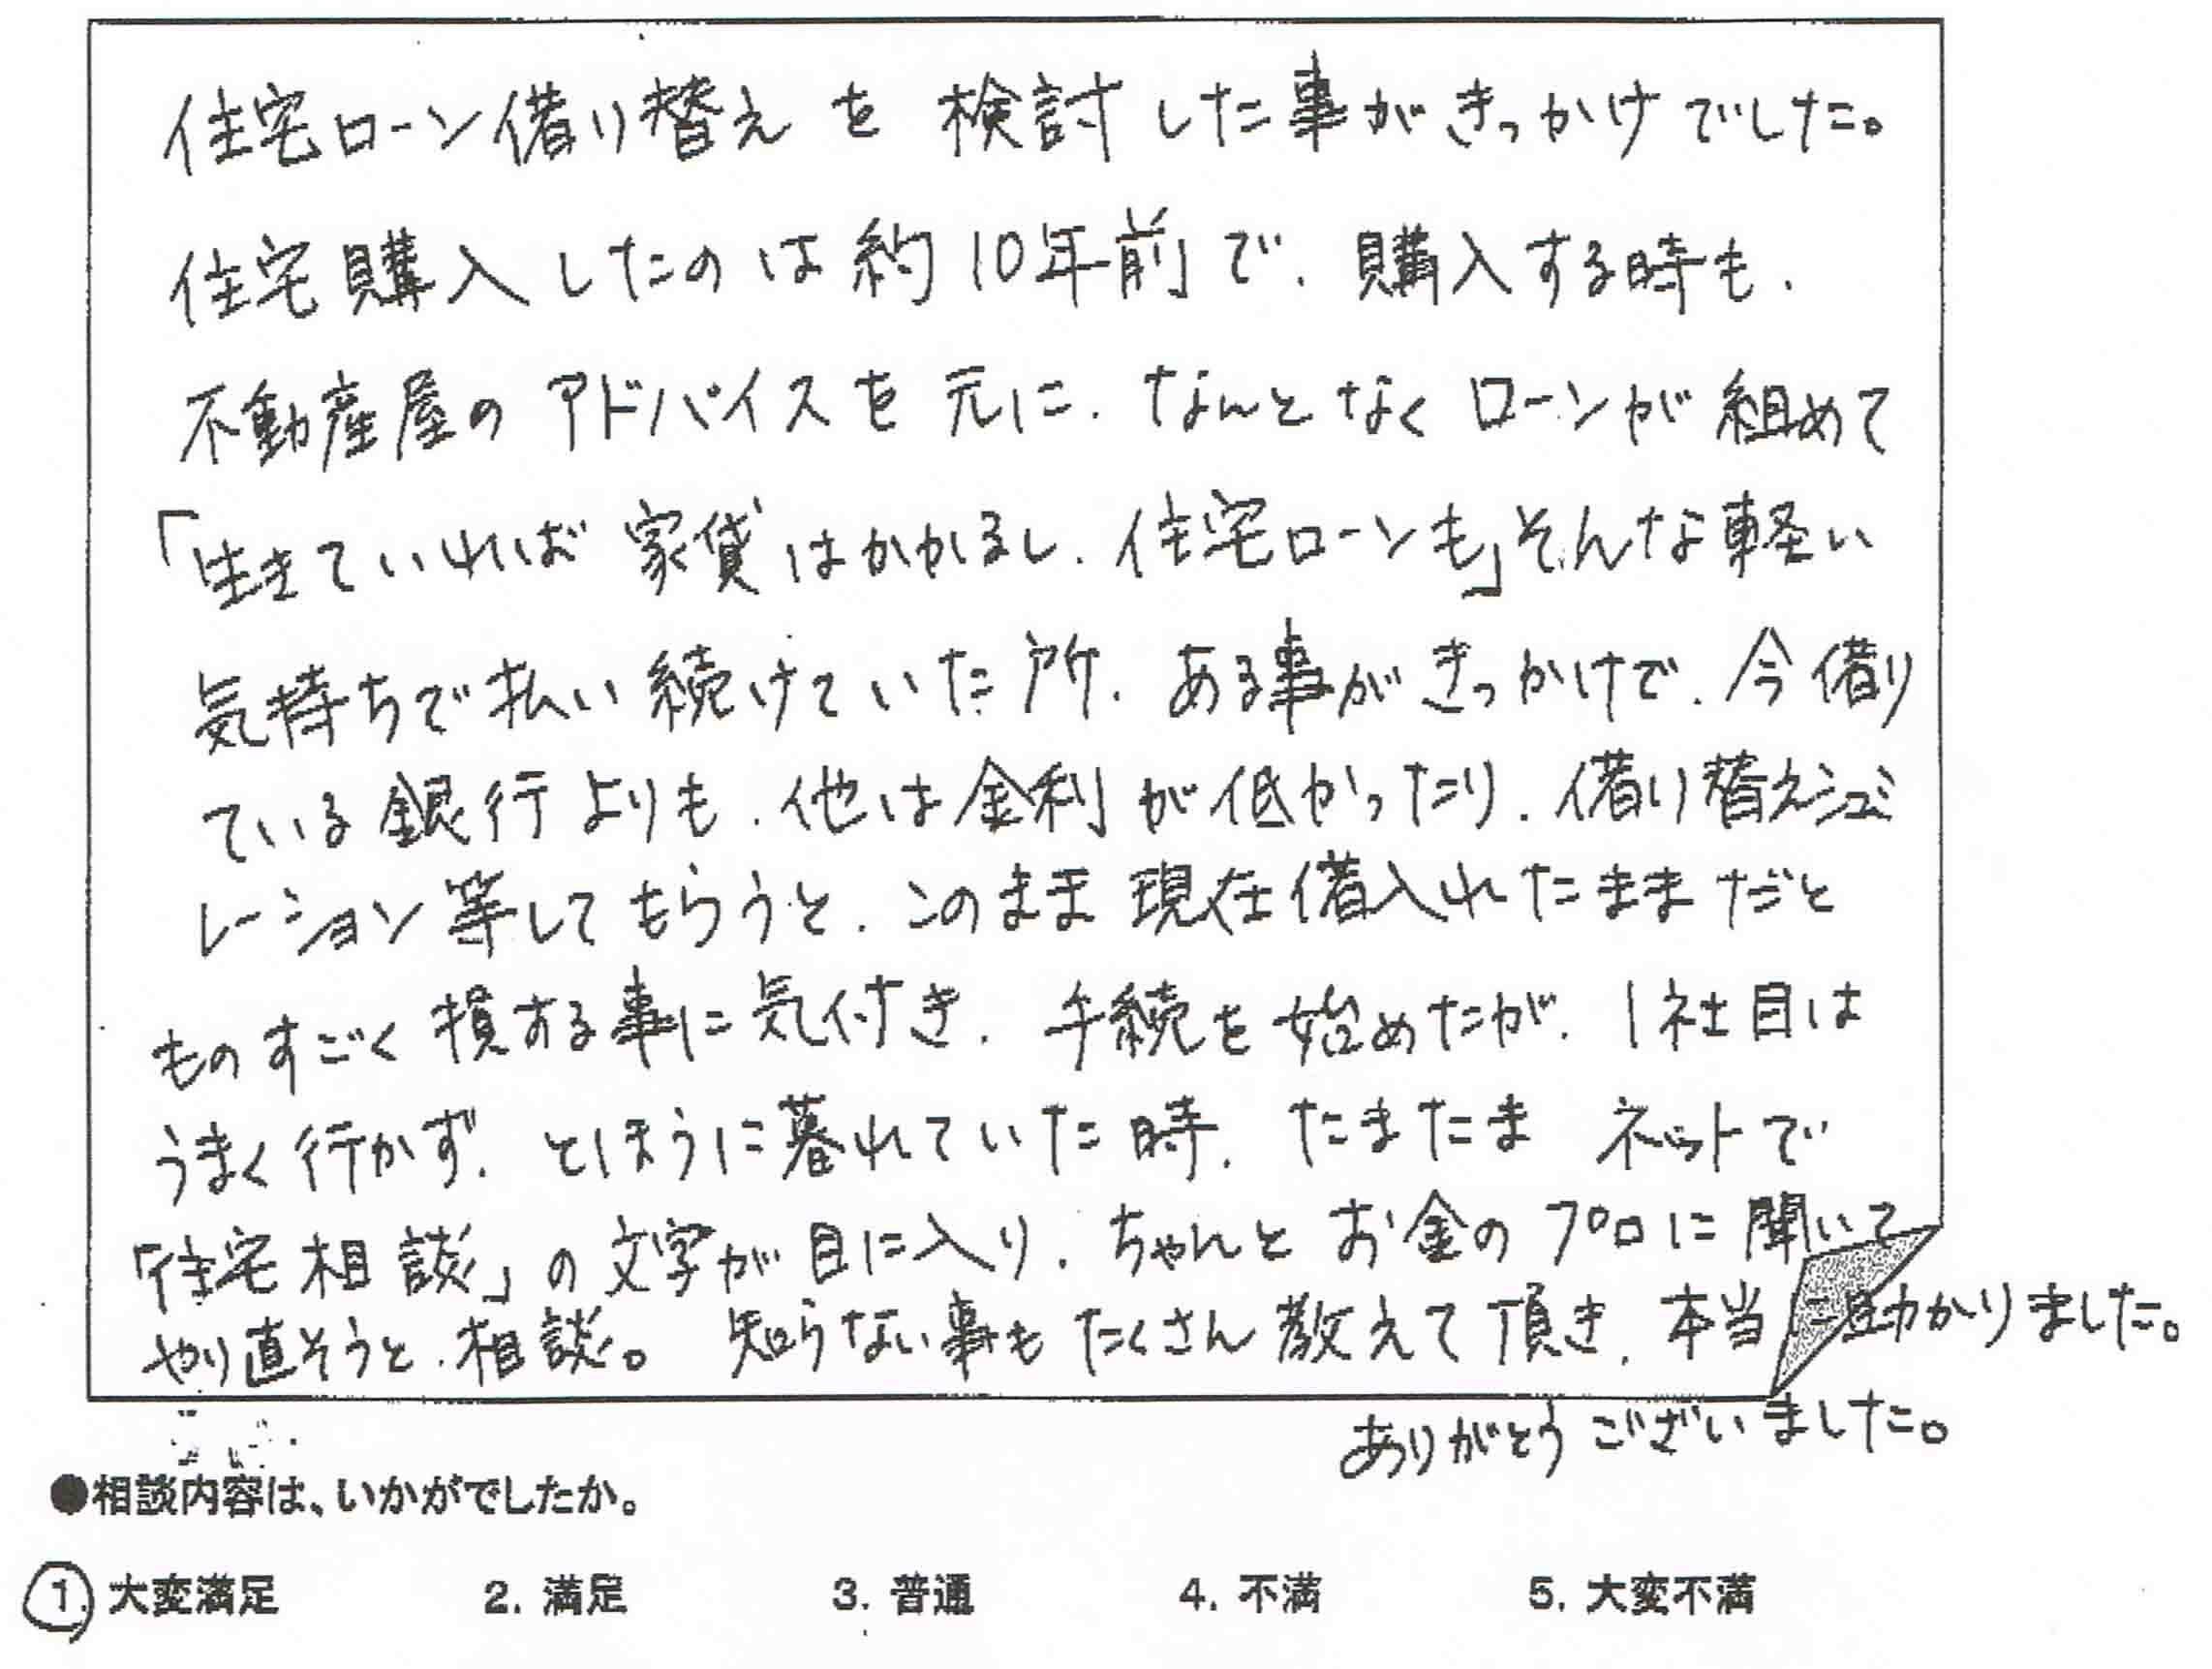 住宅ローン借り替えを検討した事がきっかけでした。
住宅購入したのは約10年前で、購入する時も、
不動産屋のアドバイスを元に、なんとなくローンが組めて
「生きていれば家賃はかかるし、住宅ローンも」そんな軽い
気持ちで払い続けていた所、ある事がきっかけで、今借り
ている銀行よりも、他は金利が低かったり、借り替えシュミ
レーション等してもらうと、このまま現在借入れたままだと
ものすごく損する事に気付き、手続を始めたが、1社目は
うまく行かず、とほうに暮れていた時、たまたまネットで
「住宅相談」の文字が目に入り、ちゃんとお金のプロに聞いて
やり直そうと、相談。知らない事もたくさん教えて頂き、本当に助かりました。
ありがとうございました。
●相談内容は、いかがでしたか。
1. 大変満足 2. 満足 3. 普通 4. 不満 5. 大変不満